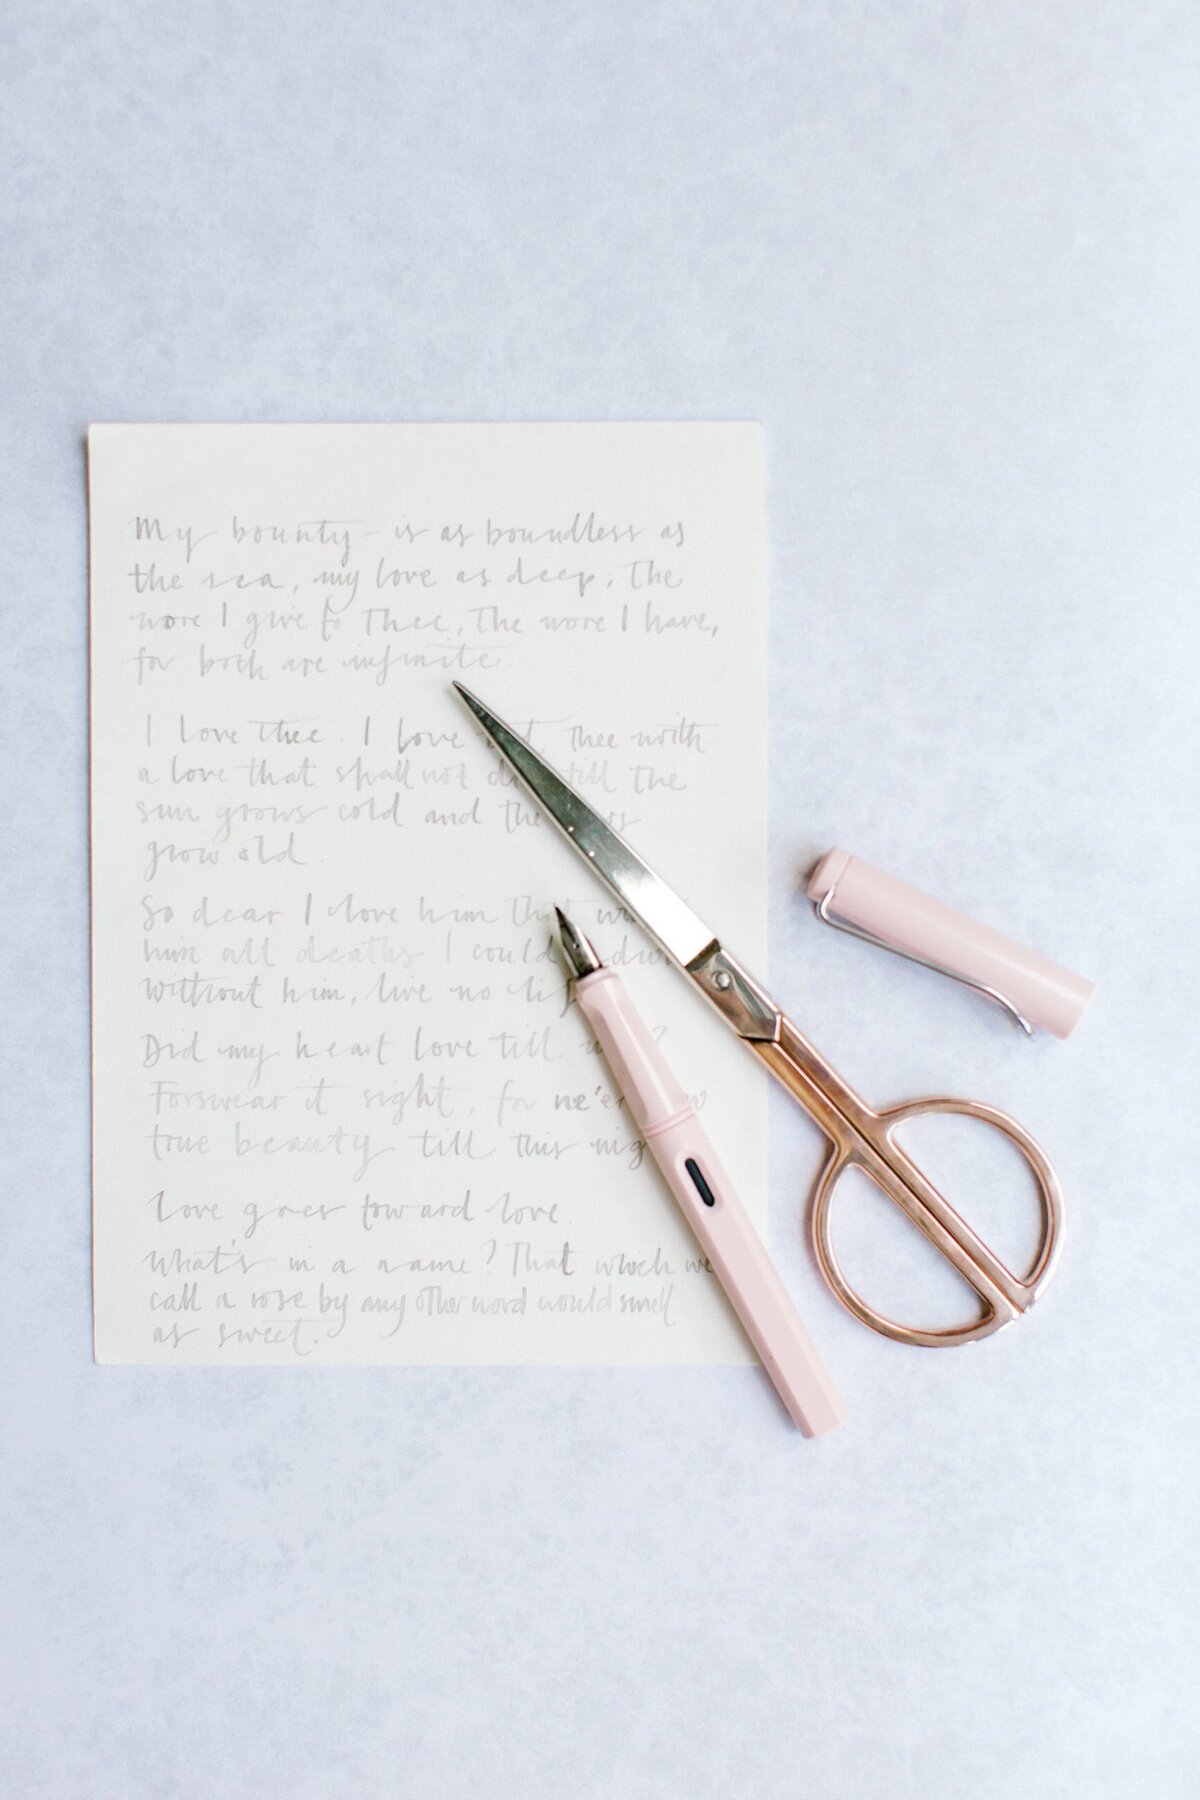 My bounty is as boundless as
the sea, my love as deep, The
more I give to Thee, The more I have,
for both are infinite
I love thee. I love thee with
a love that shall not till the
sun grows cold and the
grow old
So dear I love him that
him all deaths I could
without him, live no
Did my heart love till
Forswear it sight, for ne'er
true beauty till this
Love goes toward love
What's in a name? That which we
call a rose by any other word would smell
as sweet.